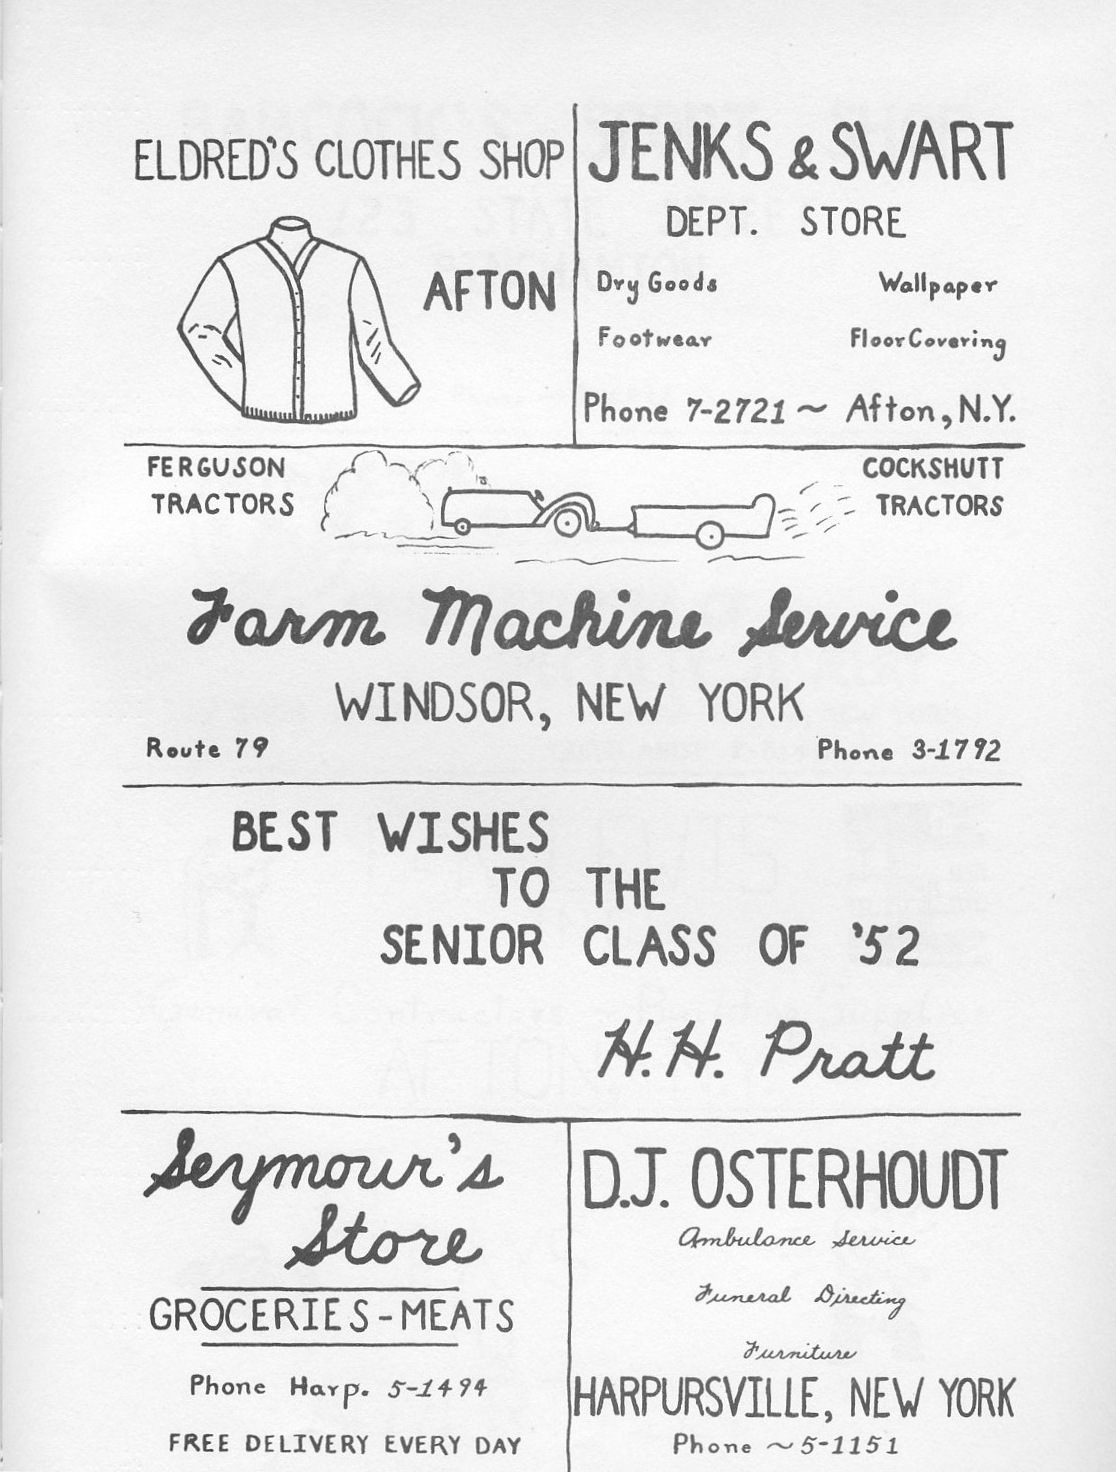 ELDRED'S CLOTHES SHOP
AFTON
JENKS & SWART
DEPT. STORE
Dry Goods Wallpaper
Footwear Floor Covering
Phone 7-2721 ~ Afton, N.Y.
FERGUSON
TRACTORS
COCKSHUTT
TRACTORS
Farm Machine Service
WINDSOR, NEW YORK
Route 79 Phone 3-1792
BEST WISHES
TO THE
SENIOR CLASS OF '52
H. H. Pratt
Seymour's
Store
GROCERIES-MEATS
Phone Harp. 5-1494
FREE DELIVERY EVERY DAY
D.J. OSTERHOUDT
Ambulance Service
Funeral Directing
Furniture
HARPURSVILLE, NEW YORK
Phone ~ 5-1151